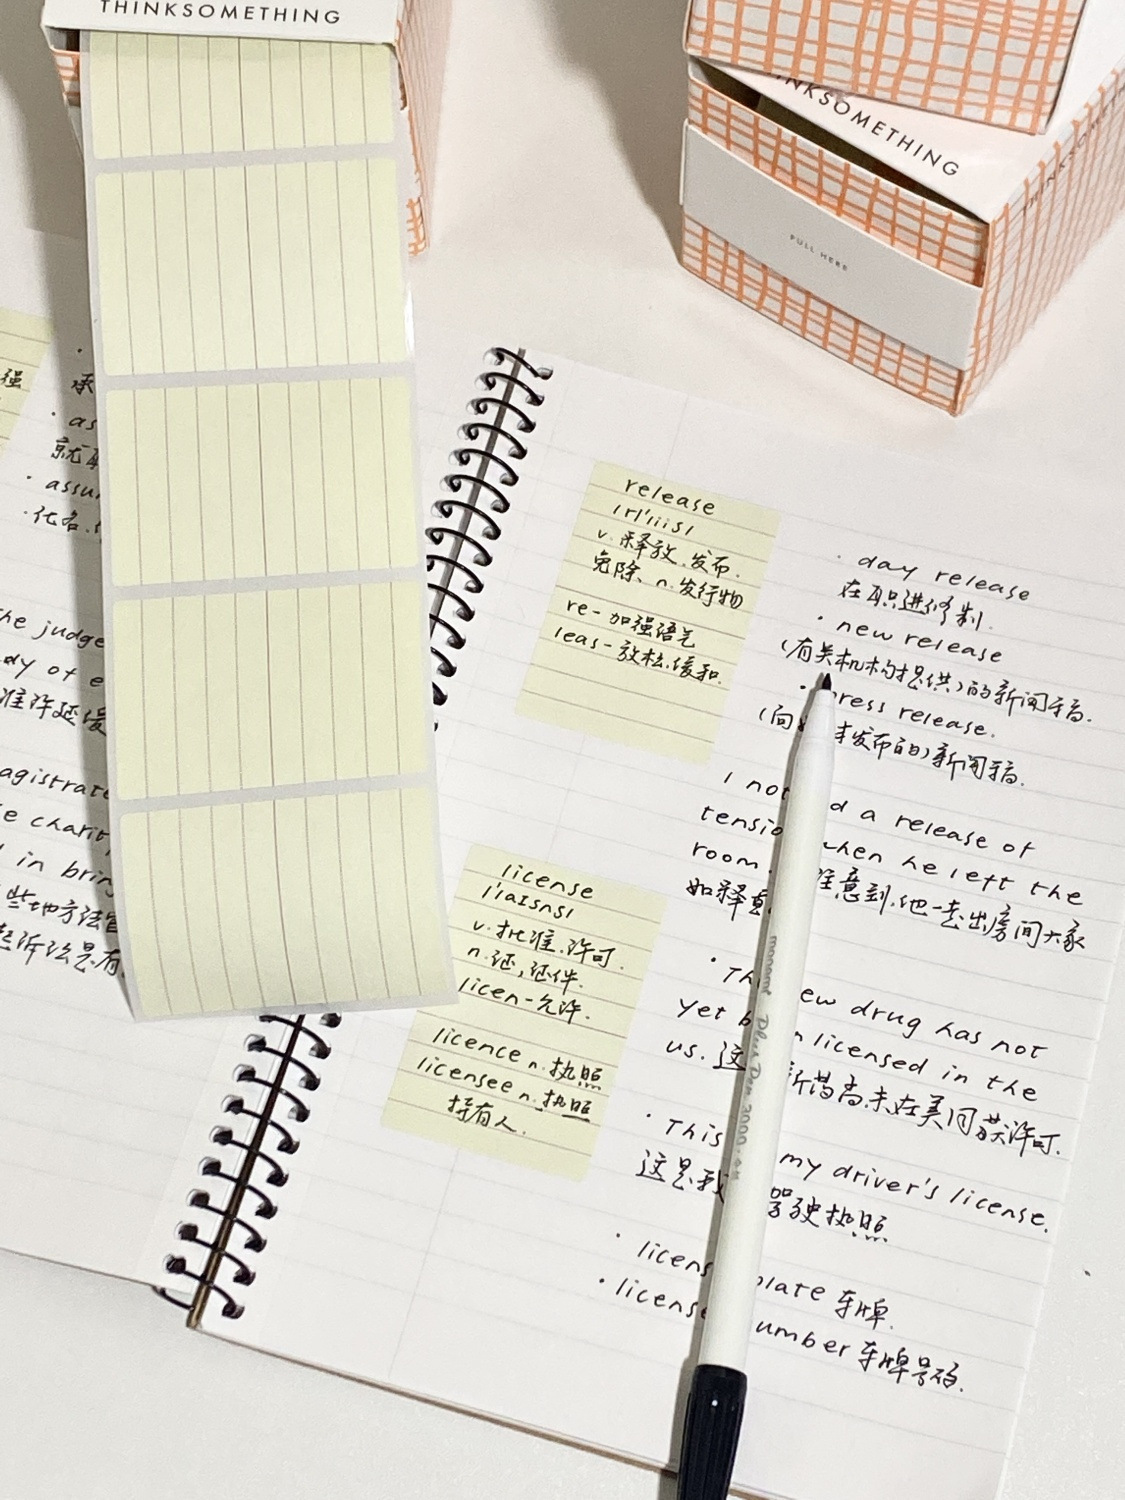 THINKSOMETHING
THINKSOMETHING
PULL HERE
强
承
as
就
assu
化名
he judge
dy of e
准许延缓
agistrate
e charit
in brin
些地方法官
起诉讼是有
release
v. 释放.发布.
免除、n.发行物
re-加强语气
leas-放松.缓和.
· day release
在职进修制.
· new release
(有关机构提供)的新闻稿.
· press release.
(向 发布的)新闻稿.
I not d a release of
tensio when he left the
room.
如释 注意到.他一走出房间大家
license
v.批准.许可.
n.证,证件.
licen-允许.
licence n.执照
licensee n.执照
持有人.
· Th ew drug has not
yet b n licensed in the
us. 这 新药尚未在美国获许可.
· This my driver's license.
这是我 驾驶执照
· licens plate 车牌.
· license umber 车牌号码.
monami Plus Pen 3000